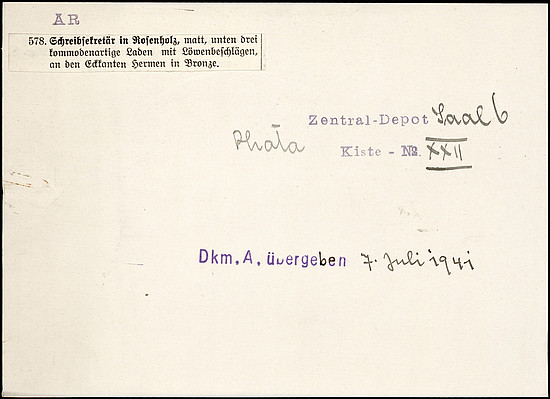 AR
578. Schreibsekretär in Rosenholz, matt, unten drei
kommodenartige Laden mit Löwenbeschlägen,
an den Eckkanten Hermen in Bronze.
Zentral-Depot Saal 6
Kiste - No. XXII
Dkm. A. übergeben 7. Juli 1941